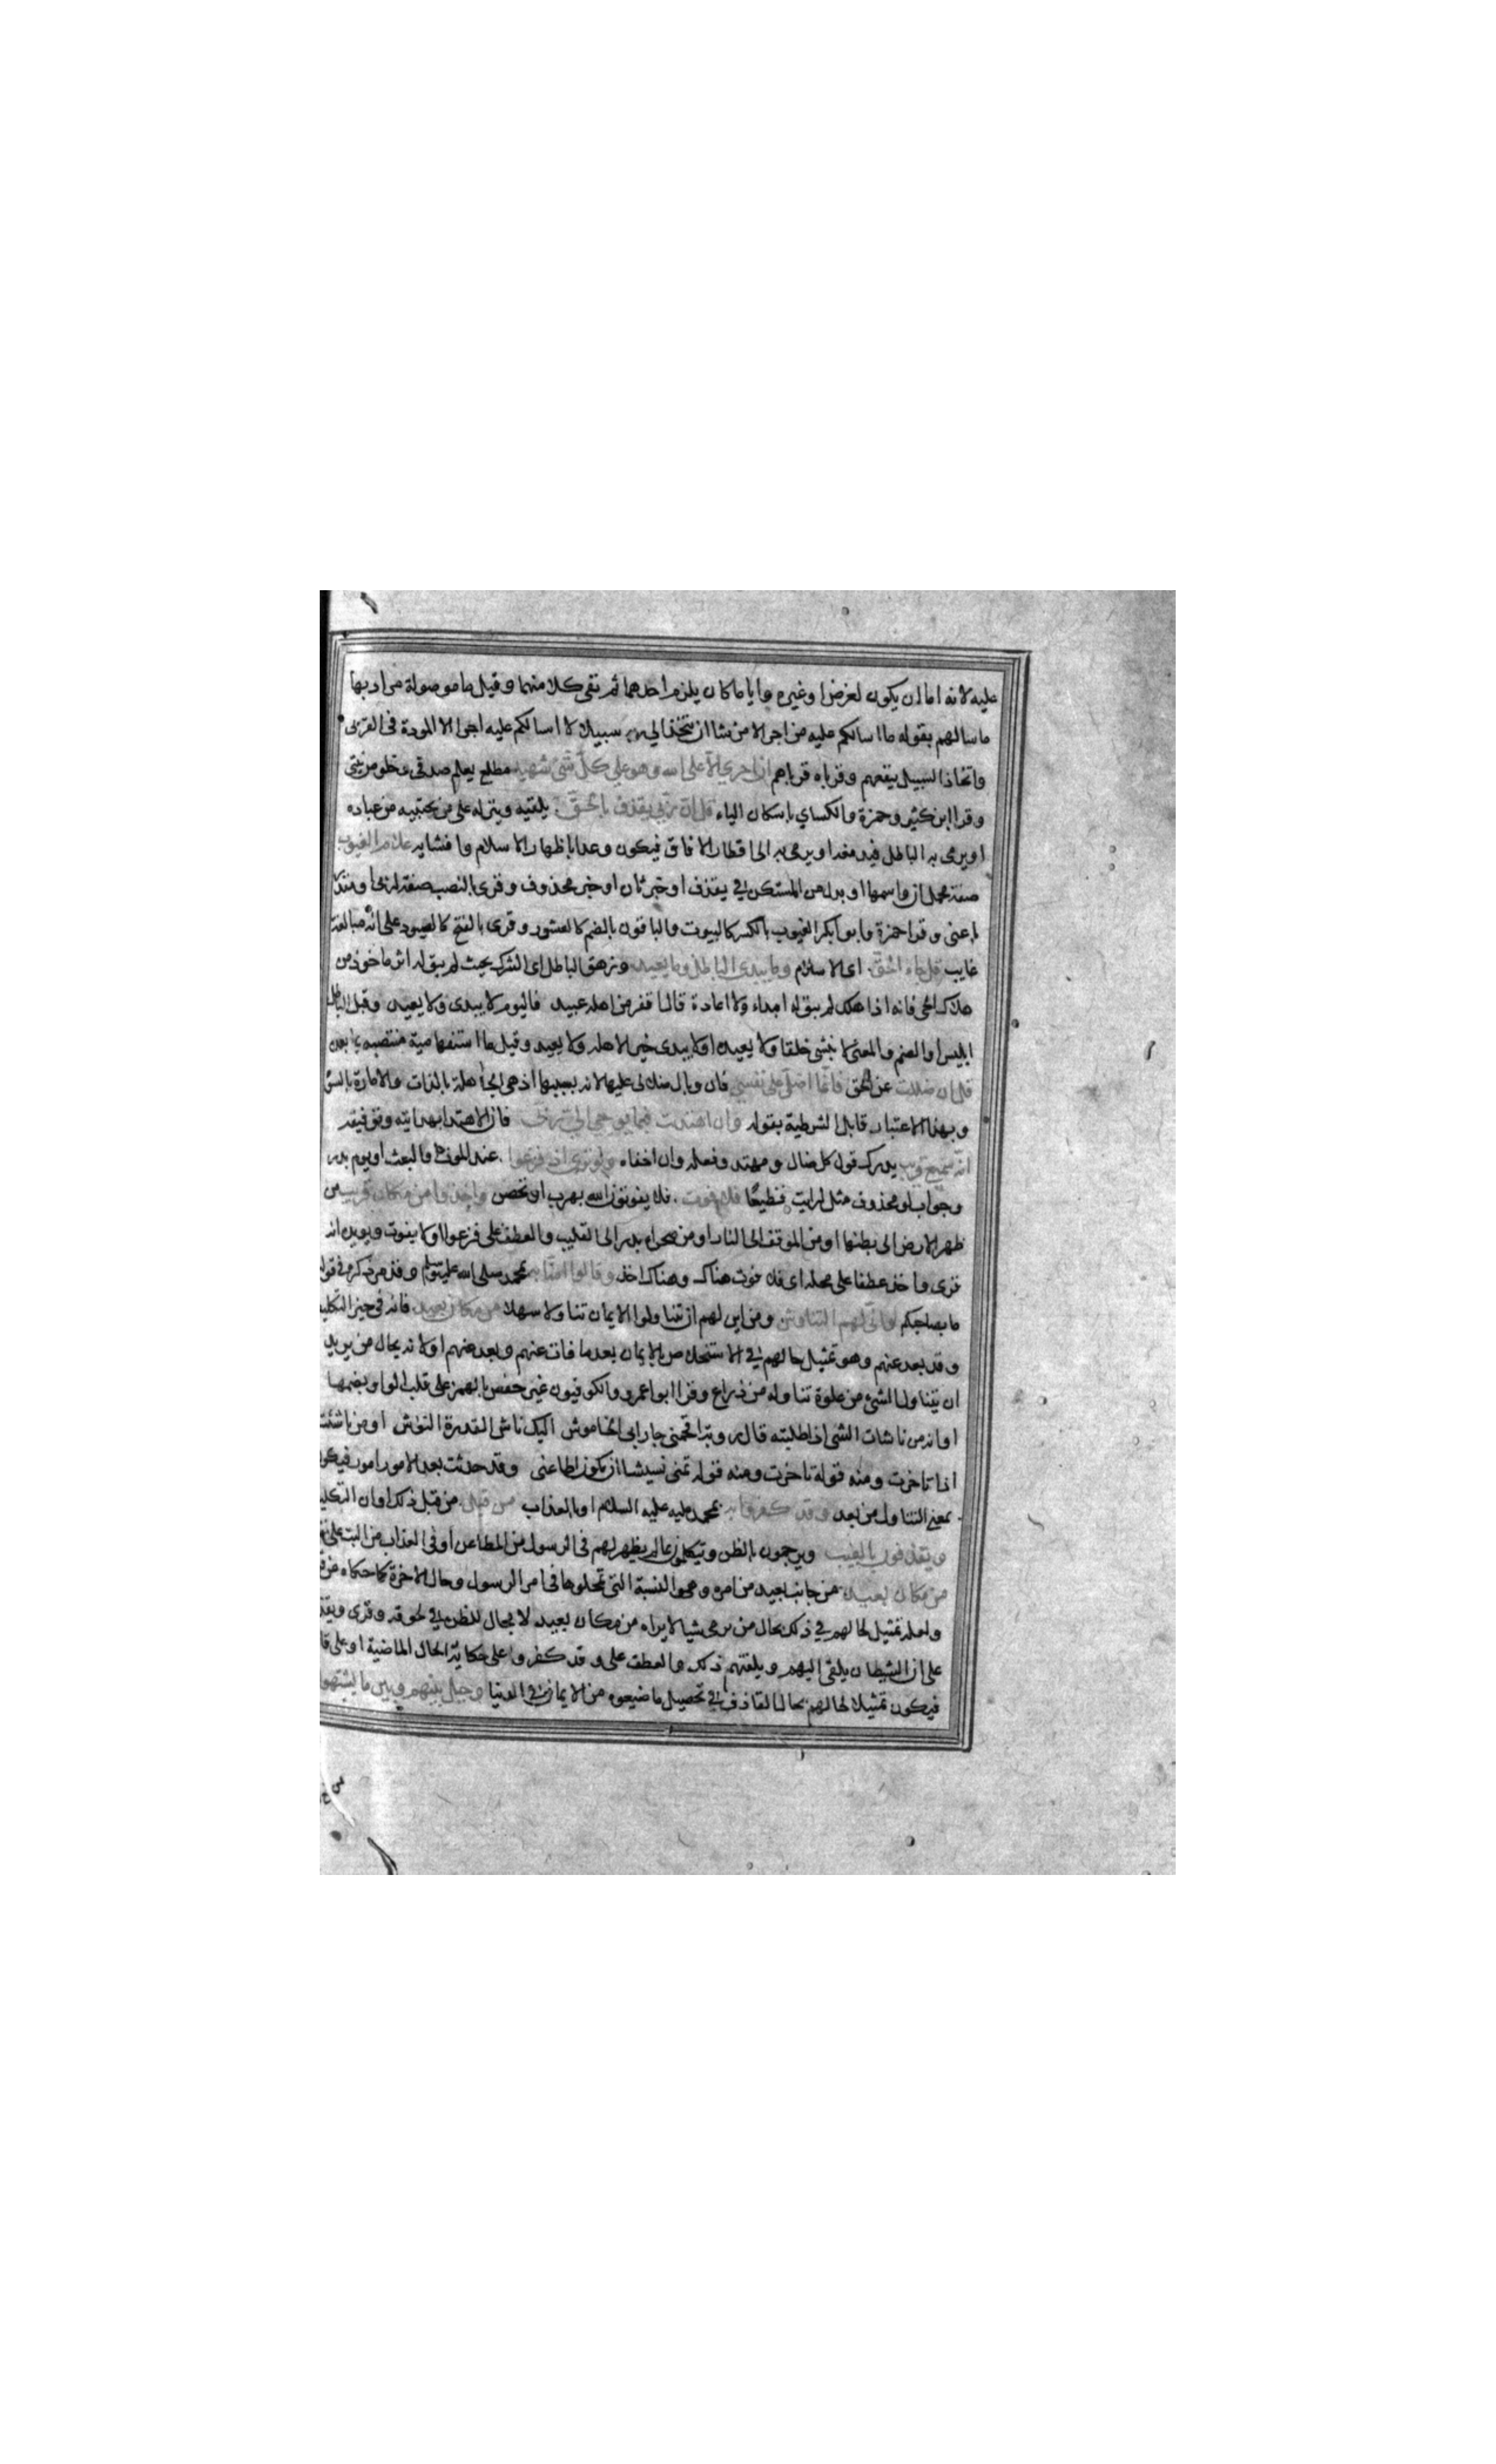 عليه لانه اما ان يكون لغرض او غيره وايا ما كان يلزم احدهما ثم نفى كلا منهما وقيل ما موصولة مراد بها
ما سالهم بقوله ما اسالكم عليه من اجر الا من شا ان يتخذ الى ربه سبيلا لا اسالكم عليه اجرا الا المودة فى القربى
واتخاذ السبيل ينفعهم وقرباه قرباهم ان اجري الا على الله وهو على كل شئ شهيد مطلع يعلم صدقى وخلوص نيتى
وقرا ابن كثير وحمزة والكساي باسكان الياء قل ان ربي يقذف بالحق يلقيه وينزله على من يجتبيه من عباده
او يرمى به الباطل فيدمغه او يرمى به الى اقطار الافاق فيكون وعدا باظهار الاسلام وافشايه علام الغيوب
صفة محمولة ان واسمها او بدل من المستكن في يقذف او خبر ثان او خبر محذوف وقرى بالنصب صفة لربى او مقدرا
باعنى وقرا حمزة وابو بكر الغيوب بالكسر كالبيوت والباقون بالضم كالعشور وقرى بالفتح كالصبود على انه مبالغة
غايب قل جاء الحق اى الاسلام وما يبدى الباطل وما يعيد وزهق الباطل اى الشرك بحيث لم يبق له اثر ماخوذ من
هلاك الحى فانه اذا هلك لم يبق له ابداء ولا اعادة قال اقفر من اهله عبيد فاليوم لا يبدى ولا يعيد وقيل الباطل
ابليس او الصنم والمعنى لا ينشى خلقا ولا يعيده او لا يبدى خير الاهله ولا يعيد وقيل ما استفهامية منتصبة بما بعدن
قل ان ضللت عن الحق فانما اضل على نفسي فان وبال ضلالى عليها لانه بسببها اذ هى الجاهلة بالذات والامارة بالسوء
وبهذا الاعتبار قابل الشرطية بقوله وان اهتديت فبما يوحي الي ربي فان الاهتدا بهدايته وتوفيقه
انه سميع قريب يدرك قول كل ضال ومهتد وفعله وان اخفاه ولو ترى اذ فزعوا عند الموت والبعث او يوم بدر
وجواب لو محذوف مثل لرايت فظيعا فلا فوت فلا يفوتون الله بهرب او تحصن واخذوا من مكان قريب من
ظهر الارض الى بطنها او من الموقف الى النار او من صحراء بدر الى القليب والعطف على فزعوا او لا فوت ويويده انه
قرى واخذ عطفا على محله اى فلا فوت هناك وهناك اخذ وقالوا امنا به بمحمد صلى الله عليه وسلم وقد مر ذكره فى قوله
ما بصاحبكم وانى لهم التناوش ومن اين لهم ان تناولوا الايمان تناولا سهلا من مكان بعيد فانه فى حيز التكليف
وقد بعد عنهم وهو تمثيل حالهم في الاستخلاص بالايمان بعد ما فات عنهم وبعد عنهم اولانه بحال من يريد
ان يتناول الشئ من غلوة تناوله من ذراع وقرا ابو عمرو والكوفيون غير حفص بالهمز على قلب الواو بضمها
او انه من ناشات الشى اذا طلبته قال رويه اقحمنى جار ابى الخاموش اليك ناش القدرة النوش او من ناشت
اذا تاخرت ومنه قوله تاخرت ومنه قوله تمنى نييشا ان يكون اطاعنى وقد حدثت بعد الامور امور فيكون
بمعنى التناول من بعد وقد كفروا به بمحمد عليه عليه السلام او بالعذاب من قبل من قبل ذلك اوان التكليف
ويقذفون بالغيب ويرجمون بالظن ويتكلمون بما لم يظهر لهم فى الرسول من المطاعن او فى العذاب من البت على نفيه
من مكان بعيد من جانب بعيد من امره وهو النسبة التى تمحلوها فى امر الرسول وحال الاخرة كما حكاه من قبل
ولعله تمثيل لحالهم في ذلك بحال من يرمى شيا لا يراه من مكان بعيد لا مجال للظن في لحوقه وقرى ويقذفون
على ان الشيطان يلقى اليهم ويلقنهم ذلك والعطف على وقد كفروا على حكاية الحال الماضية او على قالوا
فيكون تمثيلا لحالهم بحال القاذف في تحصيل ما ضيعوه من الايمان في الدنيا وحيل بينهم وبين ما يشتهون